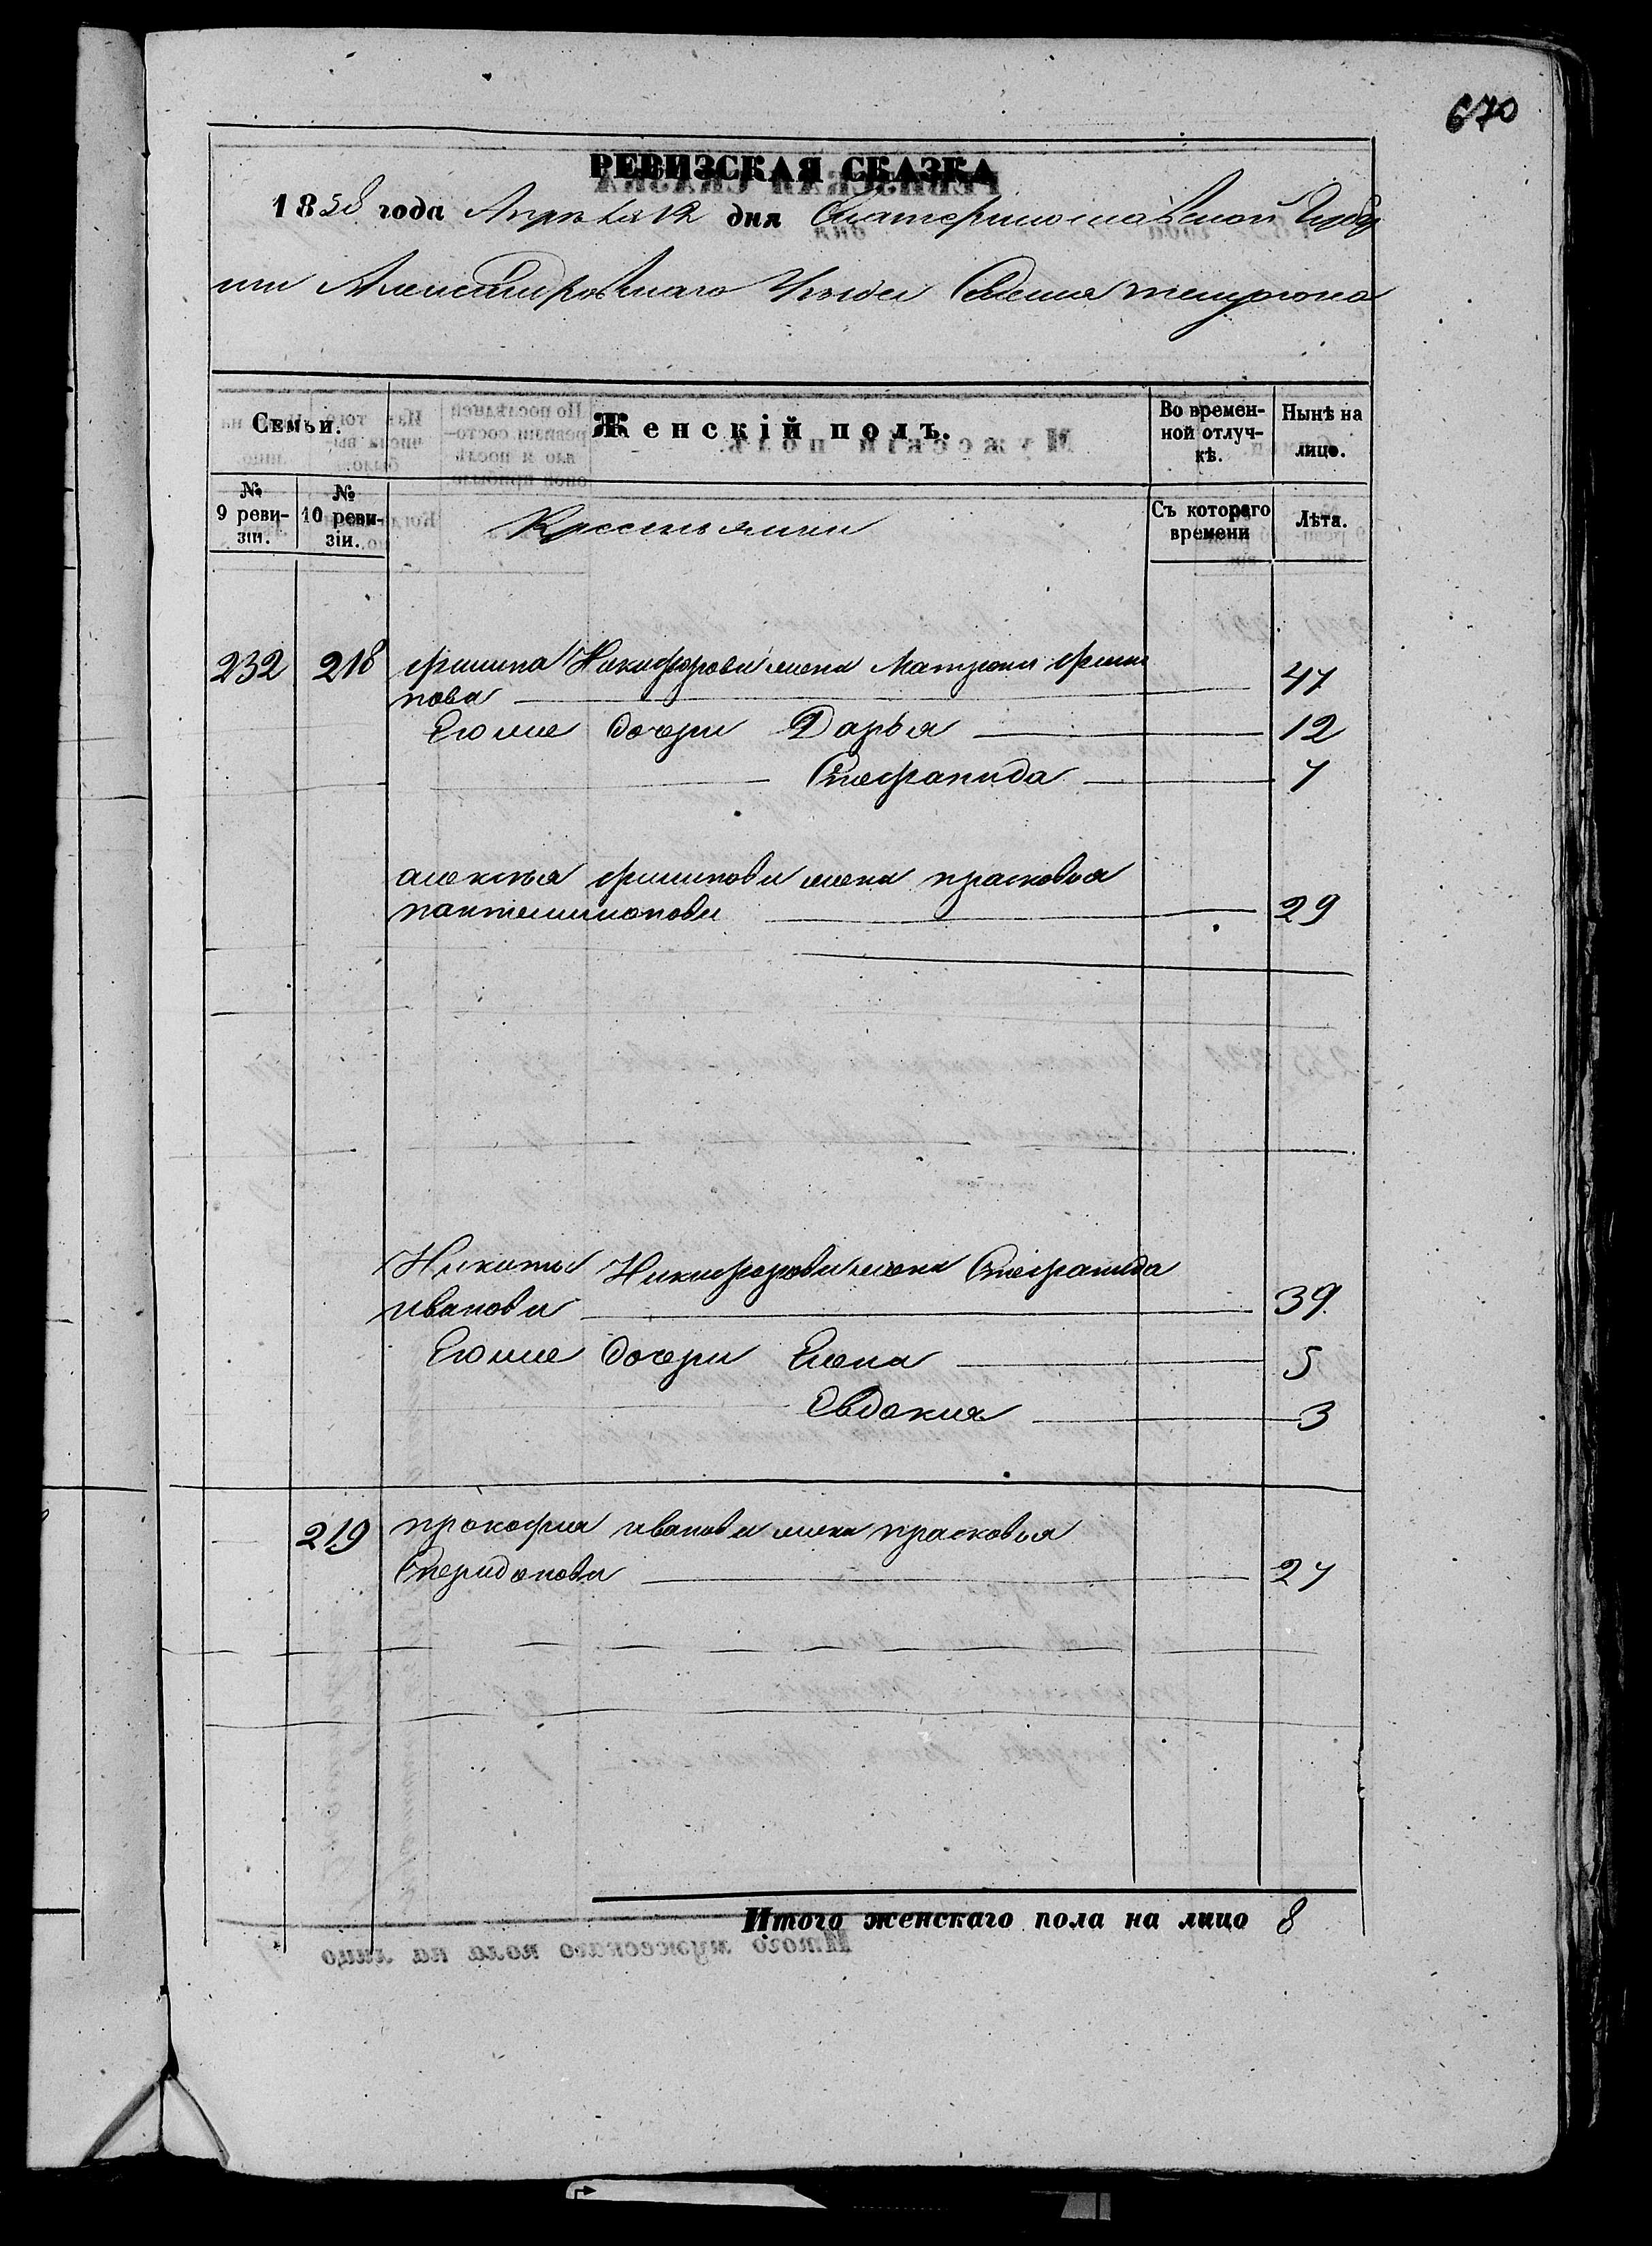 670
РЕВИЗСКАЯ СКАЗКА
1858 года Апреля 12 дня Екатеринославской Губер
нии Александровскаго Уезда Села
Семьи.
Женскій полъ.
Во времен-
ной отлуч-
кѣ.
Нынѣ на
лицо.
№
9 реви-
зіи.
№
10 реви-
зіи.
Крестьянки
Съ котораго
времени
Лѣта.
232 218 филипа Никифорова жена Матрона фили
пова 47
Его же дочери Дарья 12
Стефанида 7
алексея филипова жена прасковья
пантелимонова 29
Никиты Никифорова жена Стефанида
иванова 39
Его же дочери Елена 5
Евдокия 3
219 прокофия иванова жена прасковья
Спиридонова 27
Итого женскаго пола на лицо 8